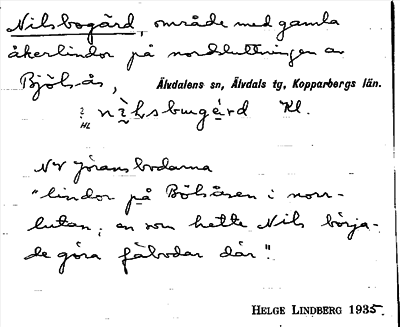 Nilsbogård, område med gamla
åkerlindor på nordsluttningen av
Bjölsås, Älvdalens sn, Älvdals tg, Kopparbergs län.
Kl.
HL
NV Jöransbodarna
"lindor på Bölsåsen i norr-
lutan, en som hette Nils börja-
de göra fäbodar där".
HELGE LINDBERG 1935.